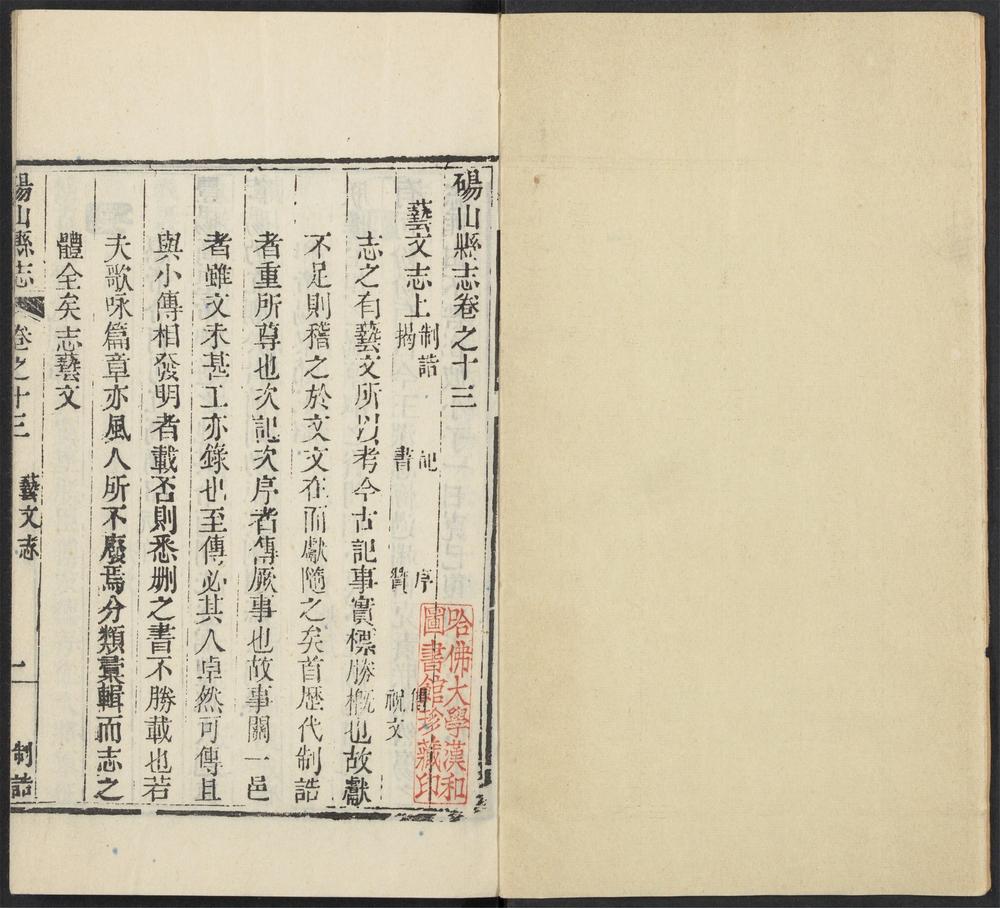 碭山縣志卷之十三
藝文志上 制誥 記 序 傳
揭 書 贊 祝文
志之有藝文所以考今古記事實標勝槪也故獻
不足則稽之於文文在而獻隨之矣首歷代制誥
者重所尊也次記次序者傳厥事也故事關一邑
者雖文未甚工亦錄也至傳必其人卓然可傳且
與小傳相發明者載否則悉刪之書不勝載也若
夫歌咏篇章亦風人所不廢焉分類彙輯而志之
體全矣志藝文
碭山縣志 卷之十三 藝文志 一 制誥
哈佛大學漢和
圖書館珍藏印